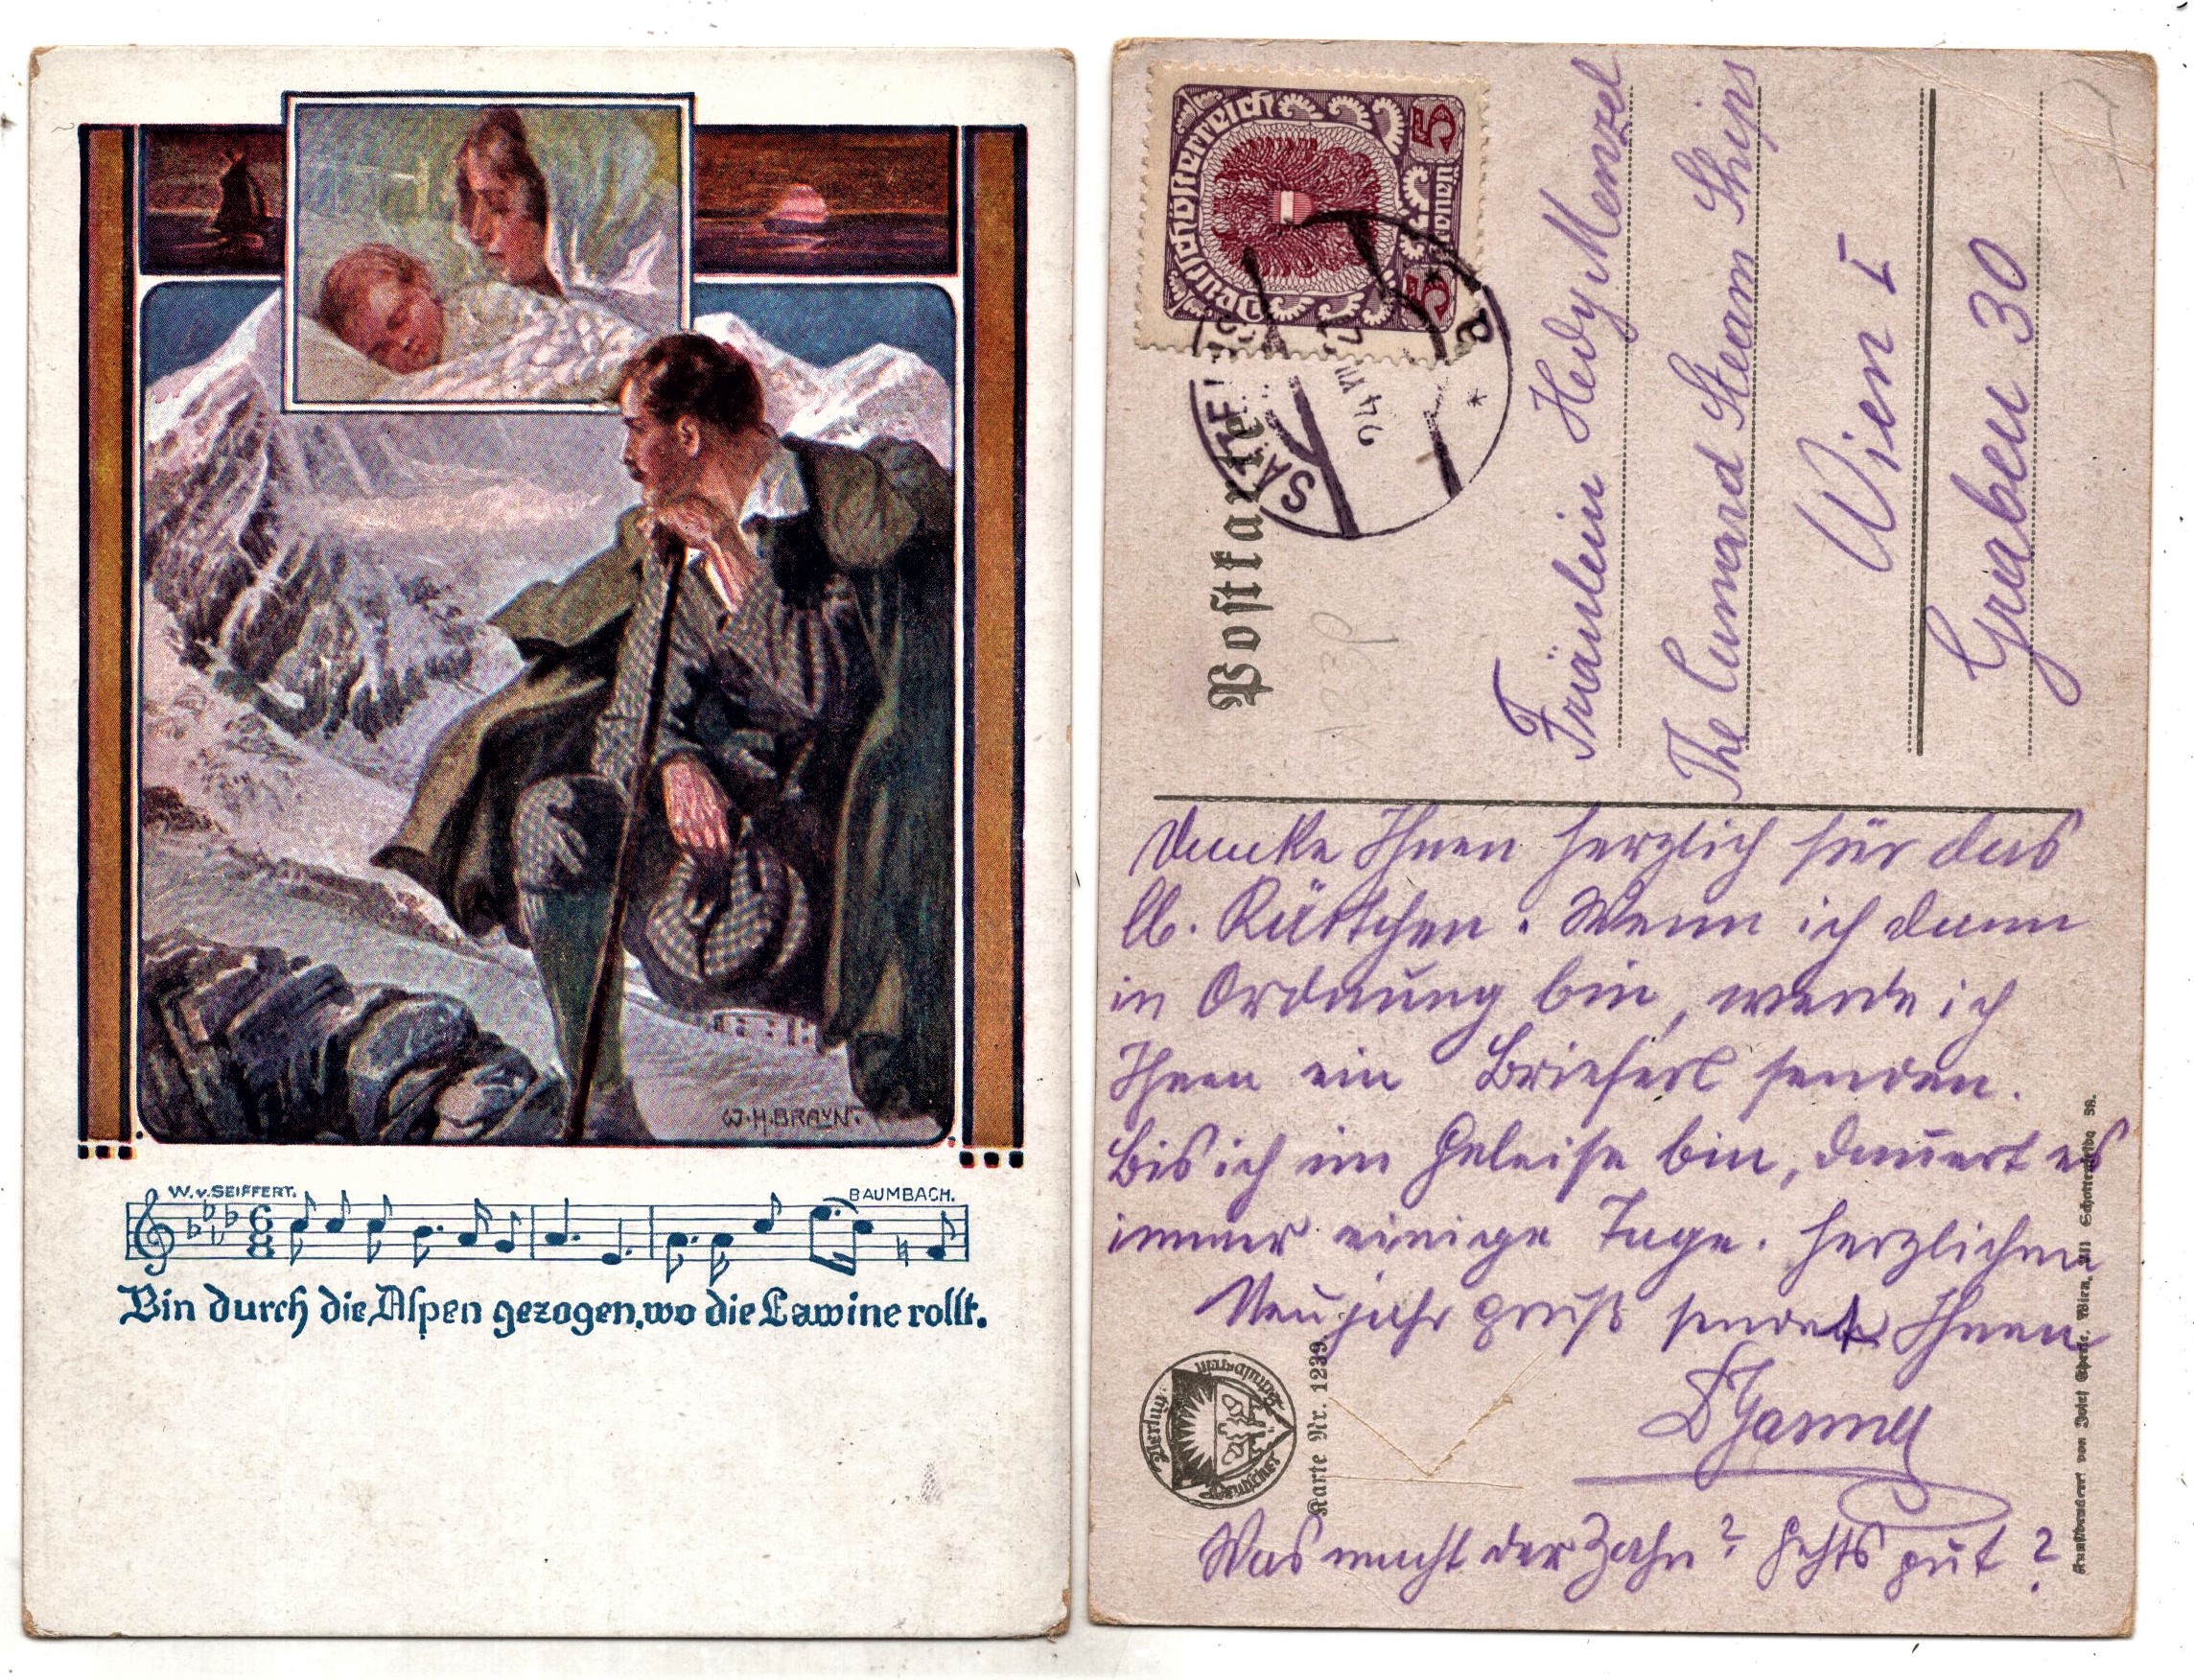 W. v. SEIFFERT.
BAUMBACH.
Bin durch die Alpen gezogen, wo die Lawine rollt.
W.H.BRAUN.
Deutschösterreich
5 5
Postkarte
24 VII
a
Fräulein Hedy Menzel
The Cunard Steam Ships
Wien I
Graben 30
Danke Ihnen herzlich für das
lb. Kärtchen. Wenn ich dann
in Ordnung bin, werde ich
Ihnen ein Brieferl senden.
Bis ich im Geleise bin, dauert es
immer einige Tage. Herzlichen
Neujahrgruß sendet Ihnen
Was macht der Zahn? Gehts gut?
Karte Nr. 1239.
Kunstdruckerei von Josef Eberle, Wien, VII Schottenfeldg. 38.